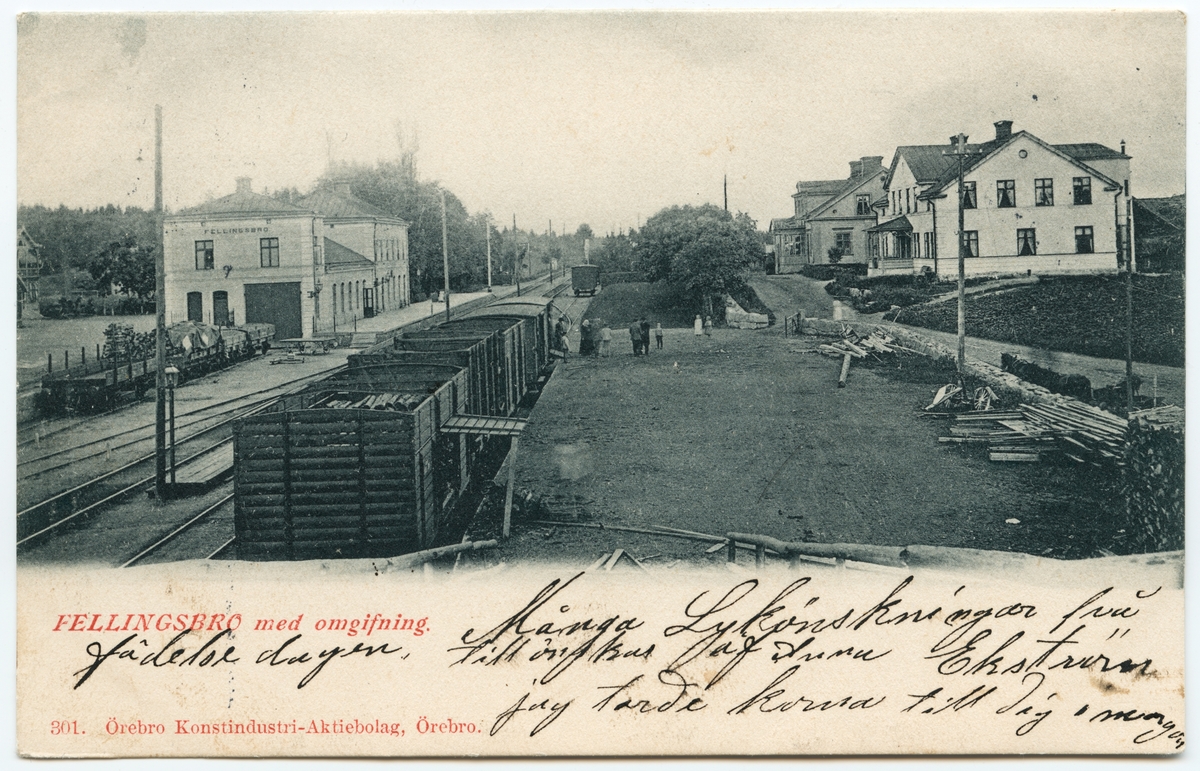 FELLINGSBRO
FELLINGSBRO med omgifning.
Många Lykönskningar på
födelse dagen,
tillönskas af Anna Ekström
jag torde koma till dig i morgon
301. Örebro Konstindustri-Aktiebolag, Örebro.